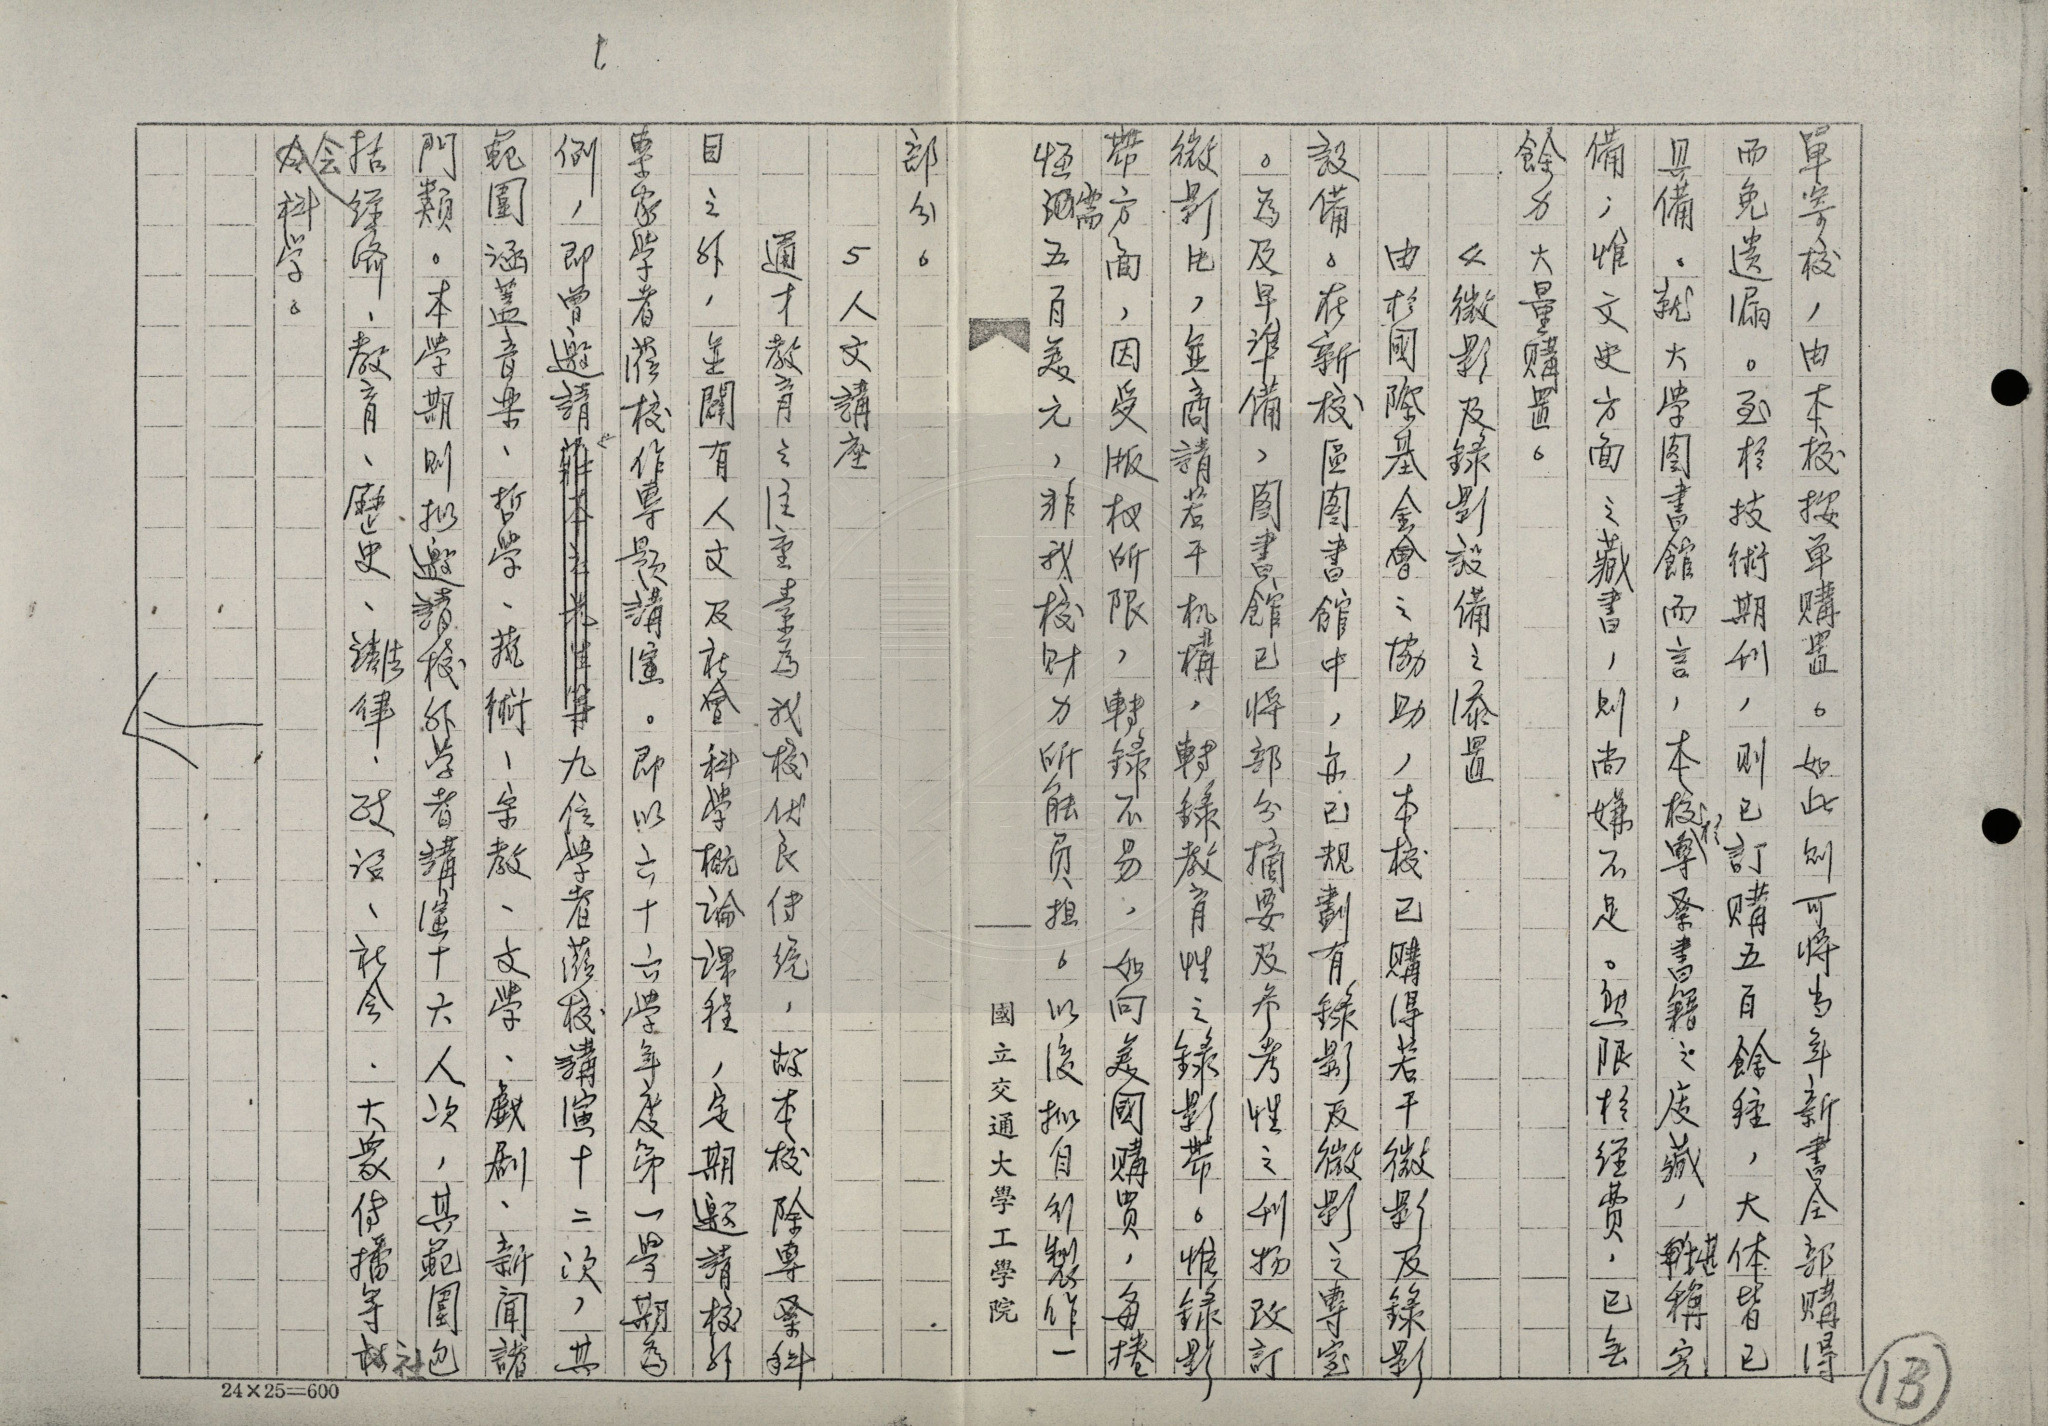 單寄校，由本校按單購置。如此則可將当年新書全部購得
而免遺漏。至於技術期刊，則已訂購五百餘種，大体皆已
具備。就大學圖書館而言，本校於專業書籍之庋藏，堪稱完
備，惟文史方面之藏書，則尚嫌不足。然限於經費，已無
餘力大量購置。
4 微影及錄影設備之添置
由於國際基金會之協助，本校已購得若干微影及錄影
設備。在新校區圖書館中，亦已規劃有錄影及微影之專室
。為及早準備，圖書館已將部分摘要及參考性之刊物改訂
微影片，並商請若干机構，轉錄教育性之錄影帶。惟錄影
帶方面，因受版权所限，轉錄不易，如向美國購買，每捲
恆需五百美元，非我校財力所能負担。以後擬自行製作一
國立交通大學工學院
部分。
5 人文講座
通才教育之注重素為我校优良传統，故本校除專業科
目之外，並開有人文及社會科學概論課程，定期邀請校外
專家學者蒞校作專題講演。即以六十六學年度第一學期為
例，即曾邀請九位學者蒞校講演十二次，其
範圍涵蓋音樂、哲學、藝術、宗教、文學、戲劇、新聞諸
門類。本學期則拟邀請校外学者講演十六人次，其範圍包
括經濟、教育、歷史、法律、政治、社会、大眾传播等社
会科学。
24×25=600
13